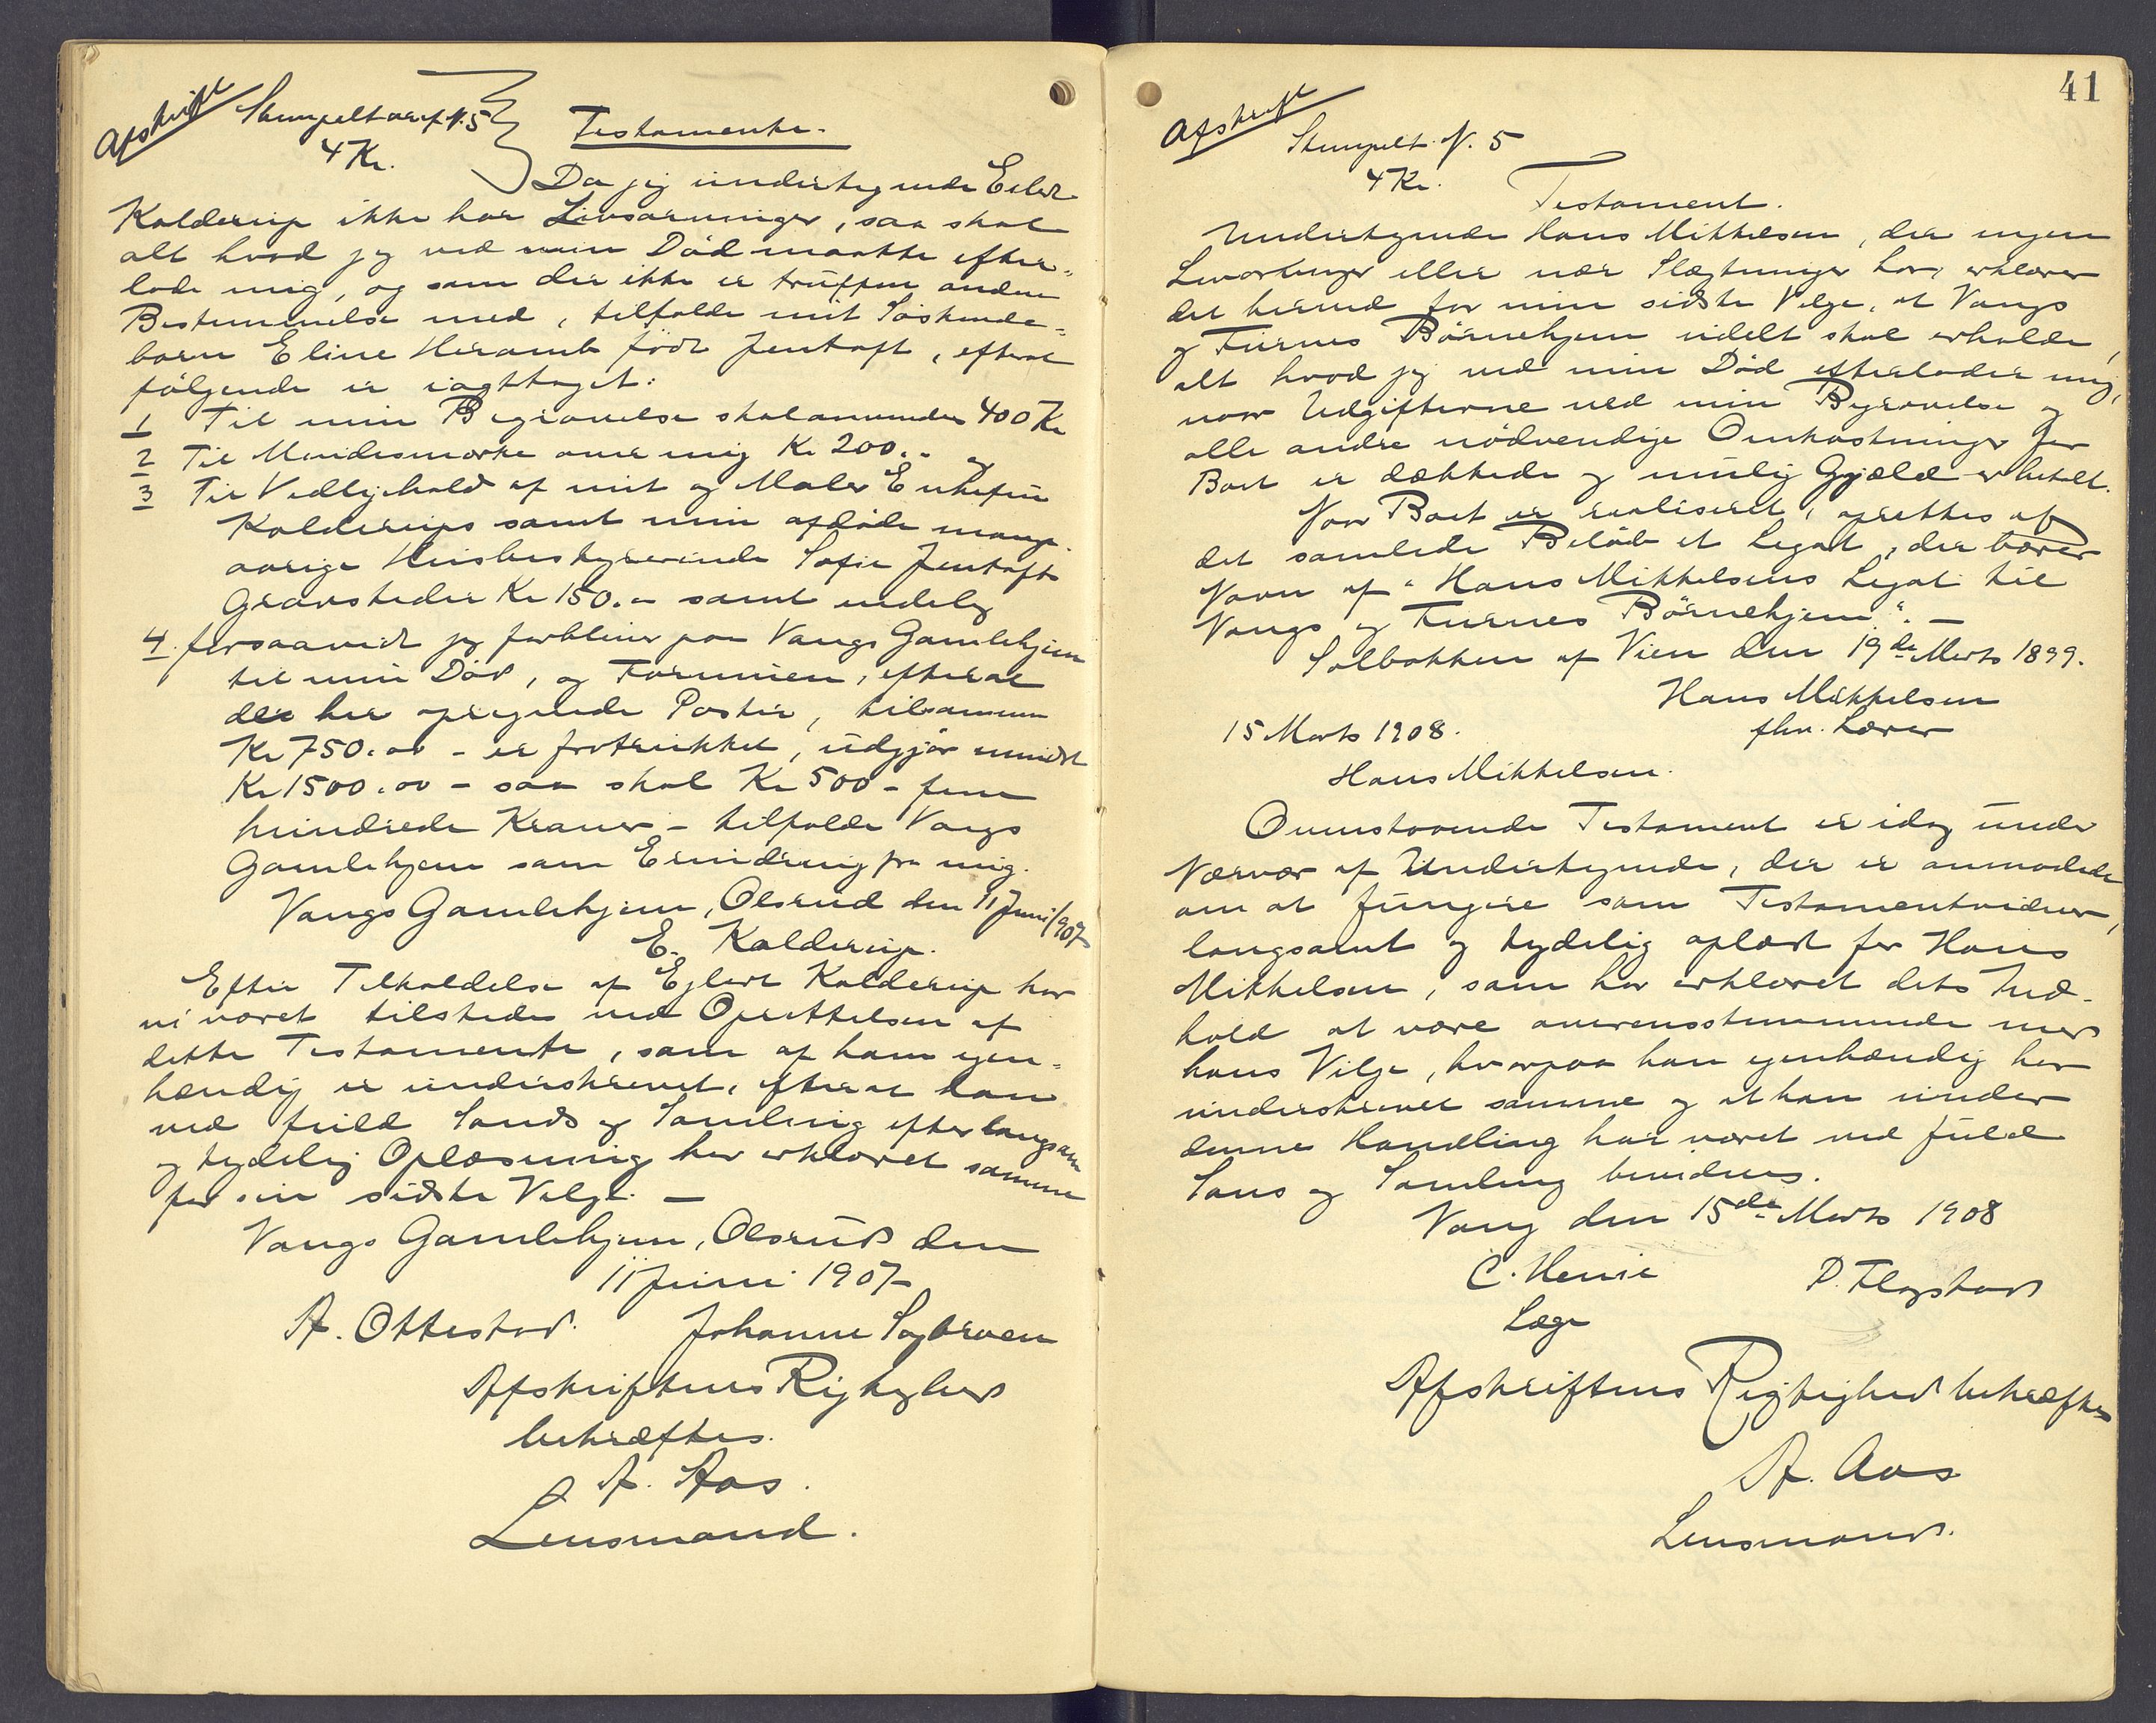 Afskrift
Stempelt ark N. 5
4 Kr.
Testamente.
Da jeg undertegnede Eilert
Kolderup ikke har Livsarvinger, saa skal
alt hvad jeg ved min Död maatte efter-
lade mig, og som der ikke er truffen anden
Bestemmelse med, tilfalde mit Söskende-
barn Eline Heramb född Jentoft, efterat
fölgende er iagttaget:
1 Til min Begravelse skal anvendes 400 Kr
2 Til Mindesmærke over mig Kr 200.- og
3 Til Vedligehold af mit og Maler Enkefru
Kolderups samt min afdöde mange-
aarige Husbestyrerinde Sofie Jentofts
Gravsteder Kr 150.- samt endelig
4. forsaavidt jeg forbliver paa Vangs Gamlehjem
til min Död, og Formuen, efterat
de her opregnede Poster, tilsammen
Kr 750.00 - er fratrukket, udgjör mindst
Kr 1500.00 - saa skal Kr 500 - fem
hundrede Kroner - tilfalde Vangs
Gamlehjem som Erindring fra mig.
Vangs Gamlehjem, Olsrud den 11 Juni 1907
E. Kolderup.
Efter Tilkaldelse af Ejlert Kolderup har
vi været tilstede ved Oprettelsen af
dette Testamente, som af ham egen-
hændig er underskrevet, efterat han
ved fuld Sands og Samling efter langsom
og tydelig Oplæsning har erklæret samme
for sin sidste Vilge. -
Vangs Gamlehjem, Olsrud den
11 Juni 1907
A. Ottestad. Johanne Sagbraaen
Afskriftens Rigtighed
bekræftes.
A. Aas.
Lensmand.
41
Afskrift
Stempelt N. 5
4 Kr.
Testament.
Undertegnede Hans Mikkelsen, der ingen
Livsarvinger eller nær Slægtninger har, erklærer
det herved for min sidste Vilge, at Vangs
og Furnes Börnehjem udelt skal erholde,
alt hvad jeg ved min Död efterlader mig,
naar Udgifterne ved min Begravelse og
alle andre nödvendige Omkostninger for
Boet er dækkede og mulig Gjæld er betalt.
Naar Boet er realiseret, oprettes af
det samlede Belöb et Legat, der bærer
Navn af "Hans Mikkelsens Legat til
Vangs og Furnes Börnehjem". -
Solbakken af Vien den 19de Marts 1899.
Hans Mikkelsen
fhv. Lærer
15 Marts 1908.
Hans Mikkelsen.
Ovenstaaende Testament er idag under
Nærvær af Undertegnede, der er anmodede
om at fungere som Testamentvidner,
langsomt og tydelig oplæst for Hans
Mikkelsen, som har erklæret dets Ind-
hold at være overensstemmende med
hans Vilje, hvorpaa han egenhændig har
underskrevet samme og at han under
denne Handling har været ved fuld
Sans og Samling bevidnes.
Vang den 15de Marts 1908
C. Henie P. Flagstad
Læge
Afskriftens Rigtighed bekræftes
A. Aas
Lensmand.